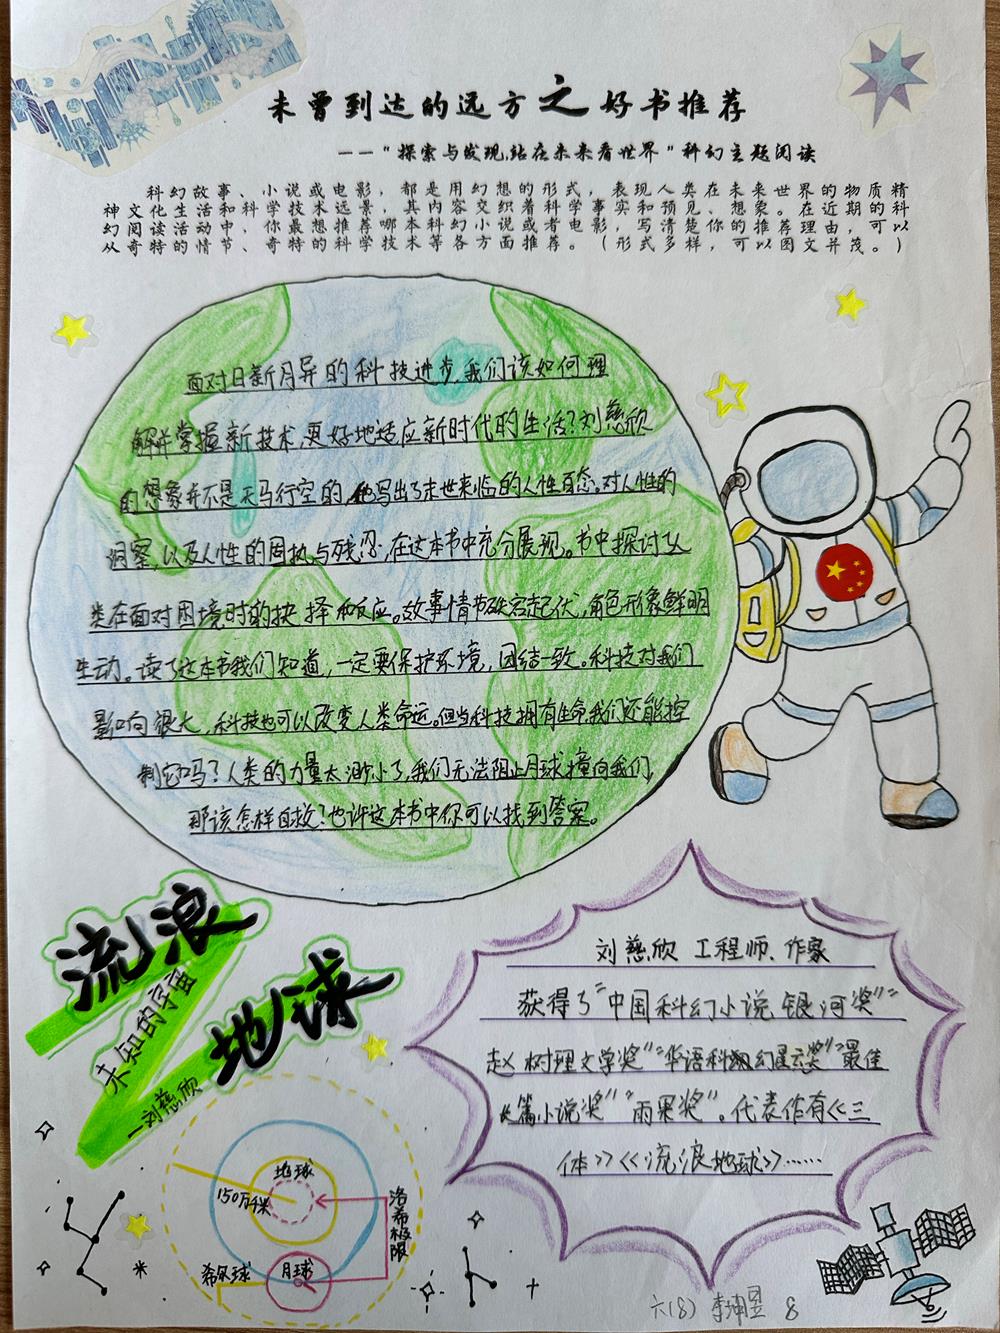 未曾到达的远方之好书推荐
——“探索与发现,站在未来看世界”科幻主题阅读
科幻故事、小说或电影，都是用幻想的形式，表现人类在未来世界的物质精
神文化生活和科学技术远景，其内容交织着科学事实和预见、想象。在近期的科
幻阅读活动中，你最想推荐哪本科幻小说或者电影，写清楚你的推荐理由，可以
从奇特的情节、奇特的科学技术等各方面推荐。（形式多样，可以图文并茂。）
面对日新月异的科技进步,我们该如何理
解并掌握新技术,更好地适应新时代的生活?刘慈欣
的想象并不是天马行空的,他写出了末世来临的人性百态。对人性的
洞察,以及人性的固执与残忍,在这本书中充分展现。书中探讨了人
类在面对困境时的抉择和反应。故事情节跌宕起伏,角色形象鲜明
生动。读了这本书我们知道,一定要保护环境,团结一致。科技对我们
影响很大,科技也可以改变人类命运。但当科技拥有生命,我们还能控
制它吗?人类的力量太渺小了,我们无法阻止月球撞向我们,
那该怎样自救?也许这本书中你可以找到答案。
流浪
地球
未知的宇宙
—刘慈欣
刘慈欣 工程师、作家
获得了“中国科幻小说银河奖”“
赵树理文学奖”“华语科幻星云奖”“最佳
长篇小说奖”“雨果奖”。代表作有《三
体》《流浪地球》……
地球
150万千米
洛希极限
希尔球
月球
六(8) 李坤昱 8